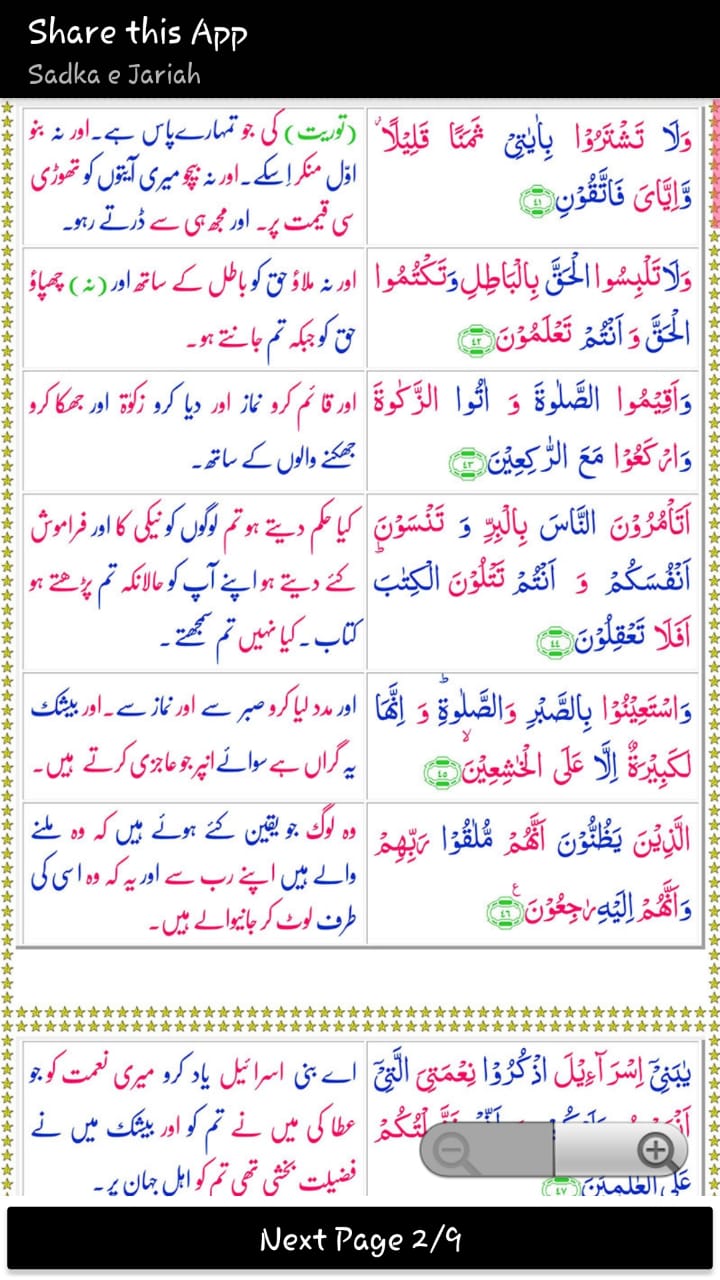 Share this App
Sadka e Jariah
وَلَا تَشْتَرُوْا بِاٰيٰتِىْ ثَمَنًا قَلِيْلًا ۫
وَّاِيَّاىَ فَاتَّقُوْنِ ٤١
(توریت) کی جو تمہارے پاس ہے۔ اور نہ بنو
اوّل منکر اِسکے۔ اور نہ بیچو میری آیتوں کو تھوڑی
سی قیمت پر۔ اور مجھ ہی سے ڈرتے رہو۔
وَلَا تَلْبِسُوا الْحَقَّ بِالْبَاطِلِ وَتَكْتُمُوا
الْحَقَّ وَ اَنْتُمْ تَعْلَمُوْنَ ٤٢
اور نہ ملاؤ حق کو باطل کے ساتھ اور (نہ) چھپاؤ
حق کو جبکہ تم جانتے ہو۔
وَاَقِيْمُوا الصَّلٰوةَ وَ اٰتُوا الزَّكٰوةَ
وَارْكَعُوْا مَعَ الرّٰكِعِيْنَ ٤٣
اور قائم کرو نماز اور دیا کرو زکوٰۃ اور جھکا کرو
جھکنے والوں کے ساتھ۔
اَتَاْمُرُوْنَ النَّاسَ بِالْبِرِّ وَ تَنْسَوْنَ
اَنْفُسَكُمْ وَ اَنْتُمْ تَتْلُوْنَ الْكِتٰبَ ؕ
اَفَلَا تَعْقِلُوْنَ ٤٤
کیا حکم دیتے ہو تم لوگوں کو نیکی کا اور فراموش
کئے دیتے ہو اپنے آپ کو حالانکہ تم پڑھتے ہو
کتاب۔ کیا نہیں تم سمجھتے۔
وَاسْتَعِيْنُوْا بِالصَّبْرِ وَالصَّلٰوةِ ؕ وَ اِنَّهَا
لَكَبِيْرَةٌ اِلَّا عَلَى الْخٰشِعِيْنَ ۙ ٤٥
اور مدد لیا کرو صبر سے اور نماز سے۔ اور بیشک
یہ گراں ہے سوائے انپر جو عاجزی کرتے ہیں۔
الَّذِيْنَ يَظُنُّوْنَ اَنَّهُمْ مُّلٰقُوْا رَبِّهِمْ
وَاَنَّهُمْ اِلَيْهِ رٰجِعُوْنَ ع ٤٦
وہ لوگ جو یقین کئے ہوئے ہیں کہ وہ ملنے
والے ہیں اپنے رب سے اور یہ کہ وہ اسی کی
طرف لوٹ کر جانیوالے ہیں۔
يٰبَنِىْٓ اِسْرَآءِيْلَ اذْكُرُوْا نِعْمَتِىَ الَّتِىْٓ
عَلَى الْعٰلَمِيْنَ ٤٧
اے بنی اسرائیل یاد کرو میری نعمت کو جو
عطا کی میں نے تم کو اور بیشک میں نے
فضیلت بخشی تھی تم کو اہل جہان پر۔
Next Page 2/9